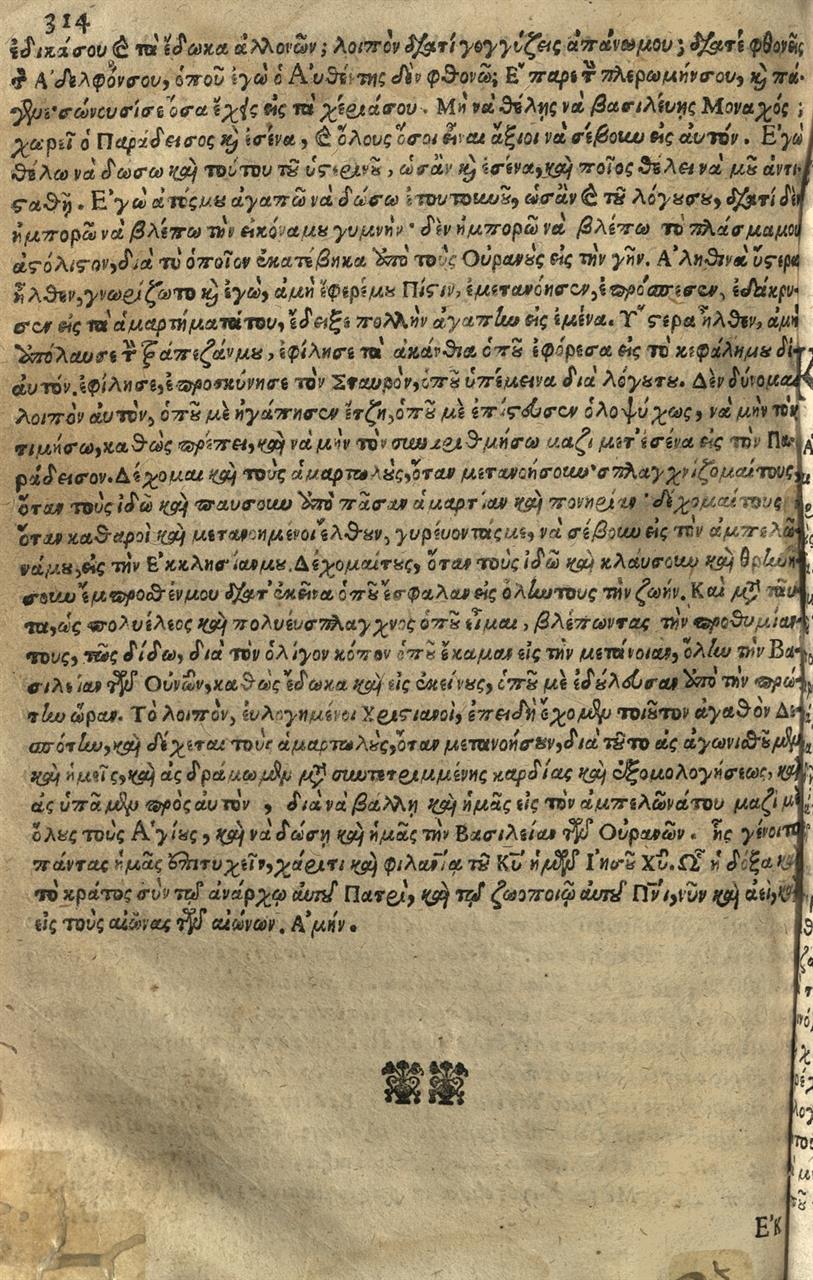 314
ἐδικάσου & τὰ ἔδωκα ἀλλονῶν; λοιπὸν διατί γογγίζεις ἀπάνωμου; διατί φθονεῖς
τ Ἀδελφόνσου, ὁποῦ ἐγὼ ὁ Αὐθέντης δὲν φθονῶ; Ἔπαρε τ πλερωμήνσου, καὶ πά-
ὅσα ἔχῃς εἰς τὰ χέριάσου. Μὴ νὰ θέλῃς νὰ βασιλεύῃς Μοναχός;
χωρεῖ ὁ Παράδεισος καὶ ἐσένα, & ὅλους ὅσοι εἶναι ἄξιοι νὰ σέβουν εἰς αὐτόν. Ἐγὼ
θέλω νὰ δώσω καὶ τούτου τοῦ ὑστερινοῦ, ὡσὰν καὶ ἐσένα, καὶ ποῖος θέλει νὰ μοῦ ἀντι-
σταθῇ. Ἐγὼ ἀτόςμου ἀγαπῶ νὰ δώσω ἐτουτουνοῦ, ὡσὰν & τοῦ λόγουσου, διατί δὲν
ἠμπορῶ νὰ βλέπω τὴν εἰκόναμου γυμνήν· δὲν ἠμπορῶ νὰ βλέπω τὸ πλάσμαμου
ἀστόλιστον, διὰ τὸ ὁποῖον ἐκατέβηκα ἀπὸ τοὺς Οὐρανοὺς εἰς τὴν γῆν. Ἀληθινὰ ὕστερα
ἦλθεν, γνωρίζωτο καὶ ἐγώ, ἀμὴ ἔφερέμου Πίστιν, ἐμετανόησεν, ἐπρόσπεσεν, ἐδάκρυ-
σεν εἰς τὰ ἁμαρτήματάτου, ἔδειξε πολλὴν ἀγάπην εἰς ἐμένα. Ὕστερα ἦλθεν, ἀμὴ
ἀπόλαυσε τ Τράπεζάνμου, ἐφίλησε τὰ ἀκάνθια ὁποῦ ἐφόρεσα εἰς τὸ κεφάλημου δι'
αὐτόν. ἐφίλησε, ἐπροσκύνησε τὸν Σταυρόν, ὁποῦ ὑπέμεινα διὰ λόγουτου. Δὲν δύνομαι
λοιπὸν αὐτόν, ὁποῦ μὲ ἠγάπησεν ἔτζη, ὁποῦ μὲ ἐπίστευσεν ὁλοψύχως, νὰ μὴν τὸν
τιμήσω, καθὼς πρέπει, καὶ νὰ μὴν τὸν συναριθμήσω μαζὶ μετ' ἐσένα εἰς τὸν Πα-
ράδεισον. Δέχομαι καὶ τοὺς ἁμαρτωλούς, ὅταν μετανοήσουν· σπλαγχνίζομαίτους,
ὅταν τοὺς ἰδῶ καὶ παύσουν ἀπὸ πᾶσαν ἁμαρτίαν καὶ πονηρίαν· δέχομαίτους
ὅταν καθαροὶ καὶ μετανοημένοι ἔλθουν, γυρέυοντάςμε, νὰ σέβουν εἰς τὸν ἀμπελῶ-
νάμου, εἰς τὴν Ἐκκλησίανμου. Δέχομαίτους, ὅταν τοὺς ἰδῶ καὶ κλάυσουν καὶ θρηνή-
σουν ἔμπροσθένμου διατ' ἐκεῖνα ὁποῦ ἔσφαλαν εἰς ὅληντους τὴν ζωήν. Καὶ μετὰ ταῦ-
τα, ὡς πολυέλεος καὶ πολυέυσπλαγχνος ὁποῦ εἶμαι, βλέπωντας τὴν προθυμίαν-
τους, τῶς δίδω, διὰ τὸν ὀλίγον κόπον ὁποῦ ἔκαμαν εἰς τὴν μετάνοιαν, ὅλην τὴν Βα-
σιλείαν τῶν Οὐνῶν, καθὼς ἔδωκα καὶ εἰς ἐκείνους, ὁποῦ μὲ ἐδούλευσαν ἀπὸ τὴν πρώ-
την ὥραν. Τὸ λοιπὸν, ἐυλογημένοι Χριστιανοί, ἐπειδὴ ἔχομεν τοιοῦτον ἀγαθὸν Δε-
σπότην, καὶ δέχεται τοὺς ἁμαρτωλούς, ὅταν μετανοήσουν, διὰ τοῦτο ἂς ἀγωνισθοῦμεν
καὶ ἡμεῖς, καὶ ἂς δράμωμεν μετὰ συντετριμμένης καρδίας καὶ ἐξομολογήσεως, καὶ
ἂς ὑπᾶμεν πρὸς αὐτὸν, διὰ νὰ βάλλῃ καὶ ἡμᾶς εἰς τὸν ἀμπελῶνάτου μαζὶ μὲ
ὅλους τοὺς Ἁγίους, καὶ νὰ δώσῃ καὶ ἡμᾶς τὴν Βασιλείαν τῶν Οὐρανῶν. ἧς γένοιτο
πάντας ἡμᾶς ἐπιτυχεῖν, χάριτι καὶ φιλανία τοῦ Κυ ἡμῶν Ἰησοῦ Χυ. Ὧ ἡ δόξα καὶ
τὸ κράτος σὺν τῷ ἀνάρχῳ αὐτοῦ Πατρὶ, καὶ τῷ ζωοποιῷ αὐτοῦ Πνι, νῦν καὶ ἀεί, καὶ
εἰς τοὺς αἰῶνας τῶν αἰώνων. Ἀμήν.
ΕΚ